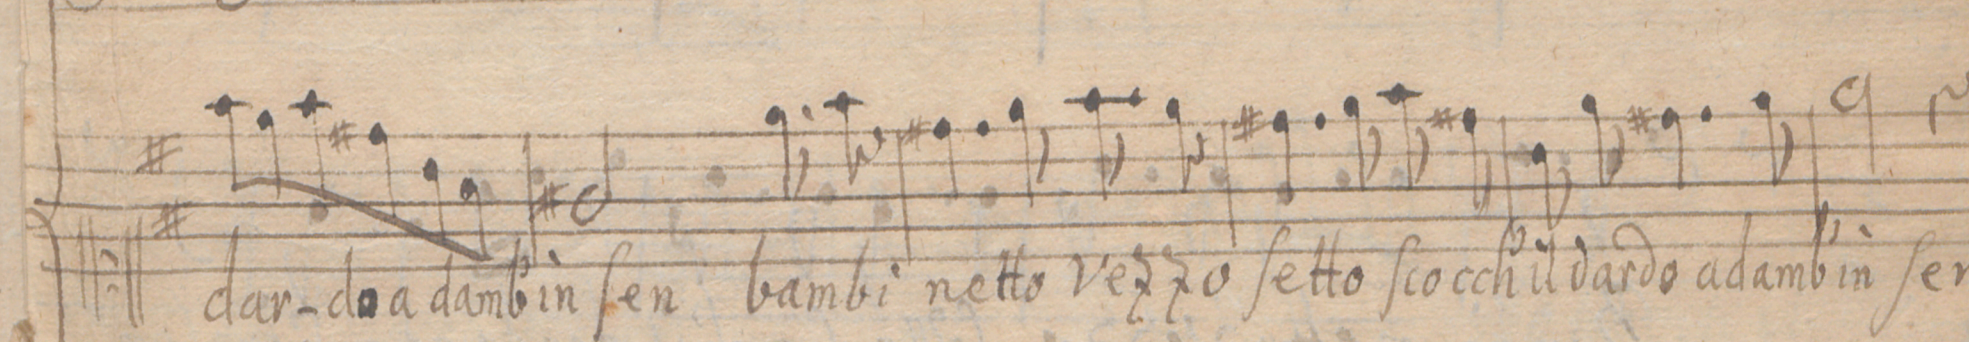 dar-do a damb'in sen bambi netto vezzo setto scocch'il dardo adamb'in sen